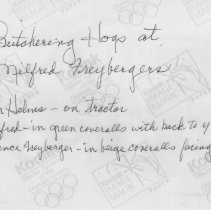 Butchering Hogs at
Wilfred Freybergers
Helms - on tractor
fred - in green coveralls with back to y
ence Freyberger - in beige coveralls facing